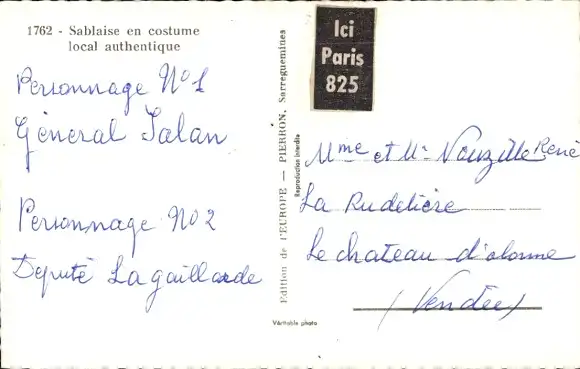 1762 - Sablaise en costume
local authentique
Personnage N°1
Général Salan
Personnage N°2
Député Lagaillarde
Edition de l'EUROPE — PIERRON, Sarreguemines
Reproduction interdite
Véritable photo
Ici
Paris
825
Mme et Mr Nouzille René
La Rudelière
Le chateau d'olonne
(Vendée)